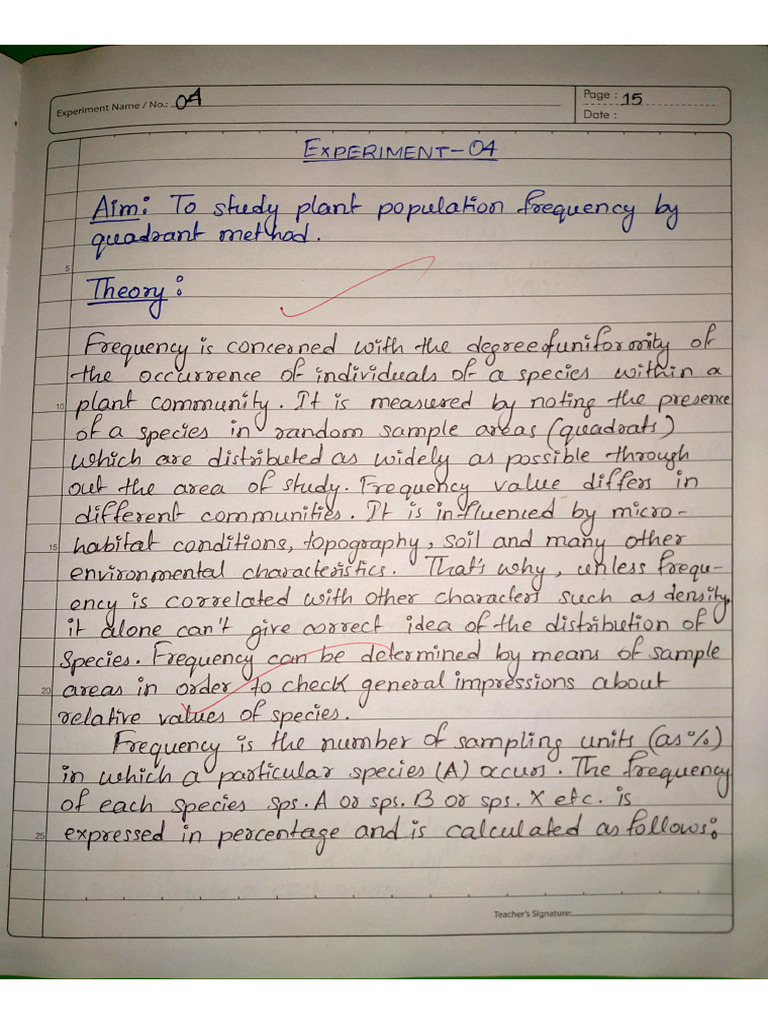 Experiment Name / No.: 04
Page : 15
Date :
EXPERIMENT-04
Aim: To study plant population frequency by
quadrant method.
5
Theory:
Frequency is concerned with the degree of uniformity of
the occurrence of individuals of a species within a
10 plant community. It is measured by noting the presence
of a species in random sample areas (quadrats)
which are distributed as widely as possible through
out the area of study. Frequency value differs in
different communities. It is influenced by micro-
15 habitat conditions, topography, soil and many other
environmental characteristics. That's why, unless frequ-
ency is correlated with other characters such as density,
it alone can't give correct idea of the distribution of
species. Frequency can be determined by means of sample
20 areas in order to check general impressions about
relative values of species.
Frequency is the number of sampling units (as %)
in which a particular species (A) occurs. The frequency
of each species sps. A or sps. B or sps. X etc. is
25 expressed in percentage and is calculated as follows:
Teacher's Signature: